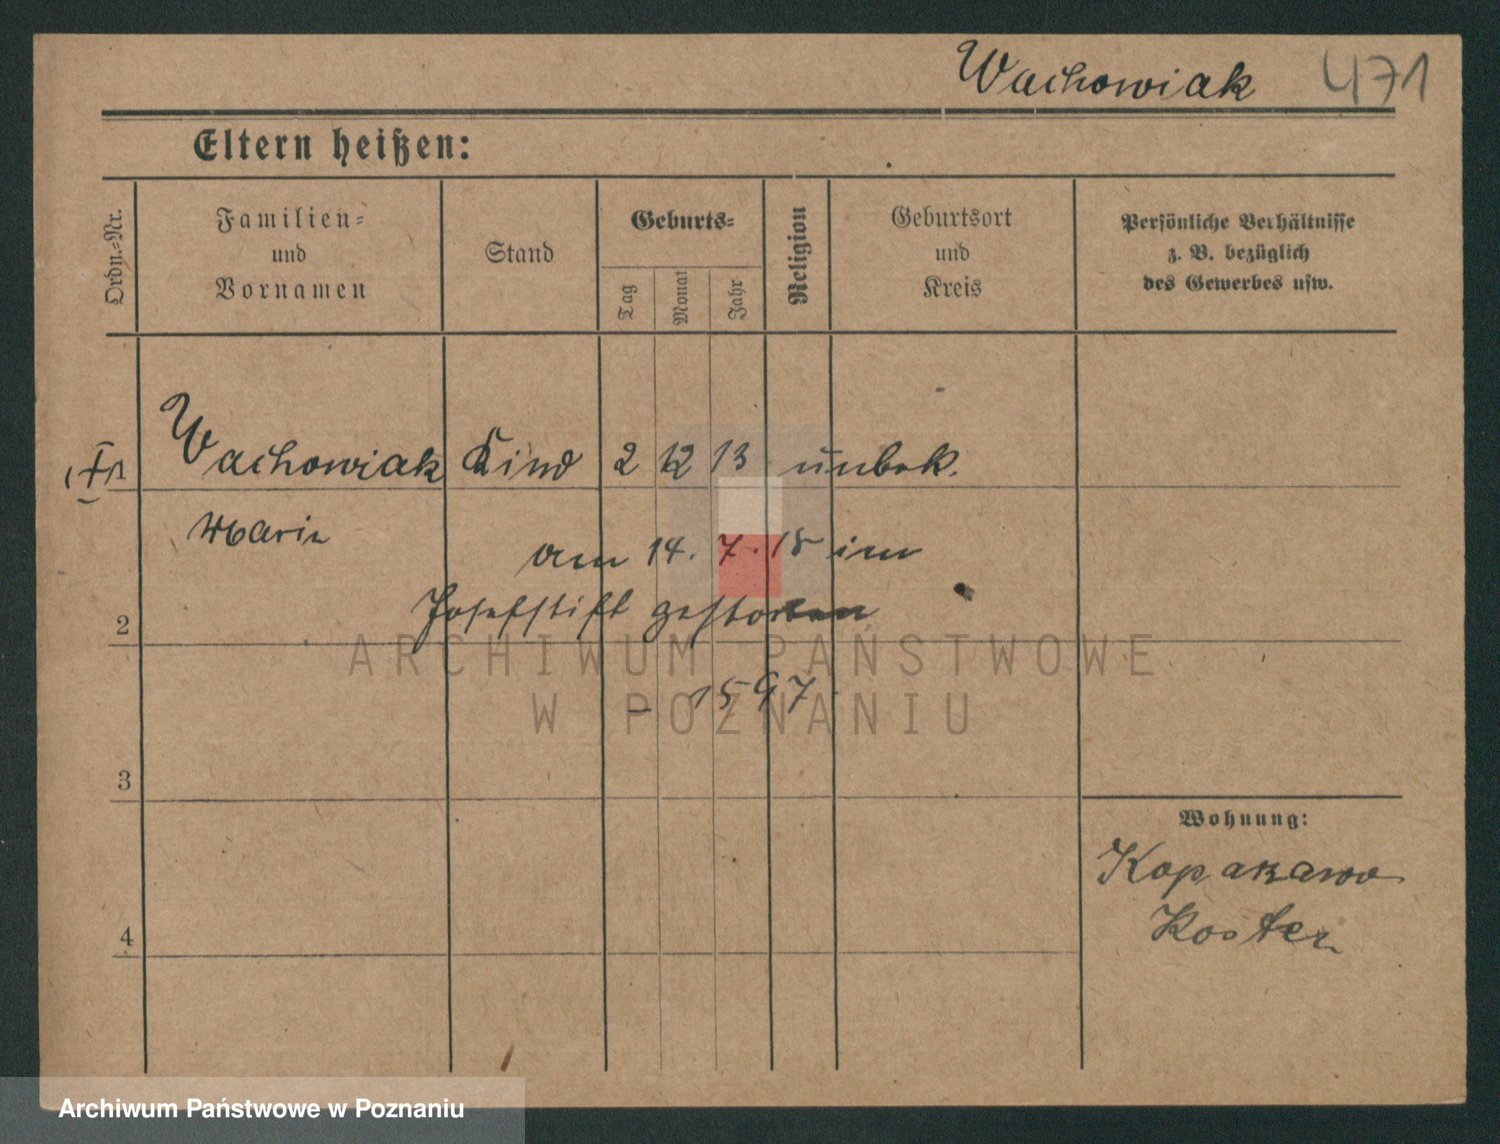 Wachowiak 471
Eltern heißen:
Ordn.-Nr.
Familien-
und
Vornamen
Stand
Geburts-
Tag
Monat
Jahr
Religion
Geburtsort
und
Kreis
Persönliche Verhältnisse
z. B. bezüglich
des Gewerbes usw.
1 Wachowiak Kind 2 12 13 unbek.
Marie
am 14. 7. 18 im
2 Josefstift gestorben
ARCHIWUM PAŃSTWOWE
W POZNANIU
– 1597
3
Wohnung:
4
Archiwum Państwowe w Poznaniu